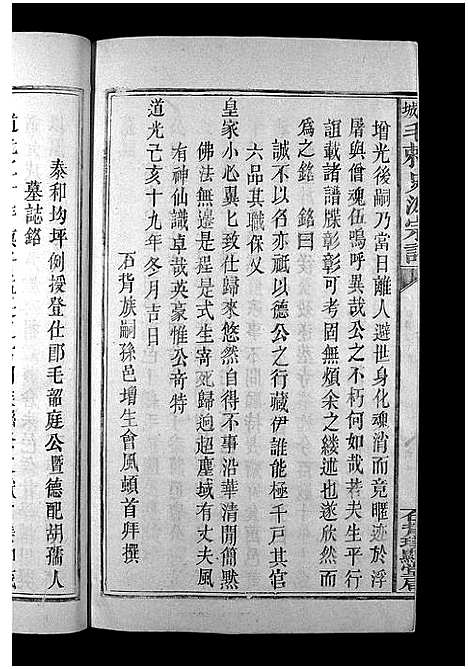 增光後嗣乃當日離人避世身化魂消而竟曖迹於浮
屠與僧魂伍嗚呼異哉公之不朽何如哉若夫生平行
誼載諸譜牒彰彰可考固無煩余之縷述也遂欣然而
為之銘 銘曰
誠不以名亦祗以德公之行藏伊誰能極千戸其官
六品其職保乂
皇家小心翼翼匕仕歸來悠然自得不事沿華清閒簡黙
佛法無邊是程是式生寄死歸迥超塵域有丈夫風
有神仙識卓哉英豪惟公竒特
道光己亥十九年冬月吉日
石背族嗣孫邑增生會風頓首拜撰
泰和均坪例授登仕郎毛韶庭公暨德配胡孺人
墓誌銘